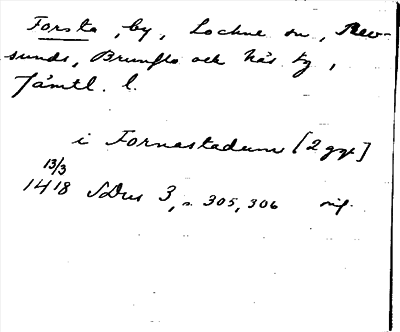 Forsta, by, Lockne sn, Rev-
sunds, Brunflo och Näs tg,
Jämtl. l.
i Fornastadum [2 ggr]
13/3
1418 SDns 3, s. 305, 306 orig.